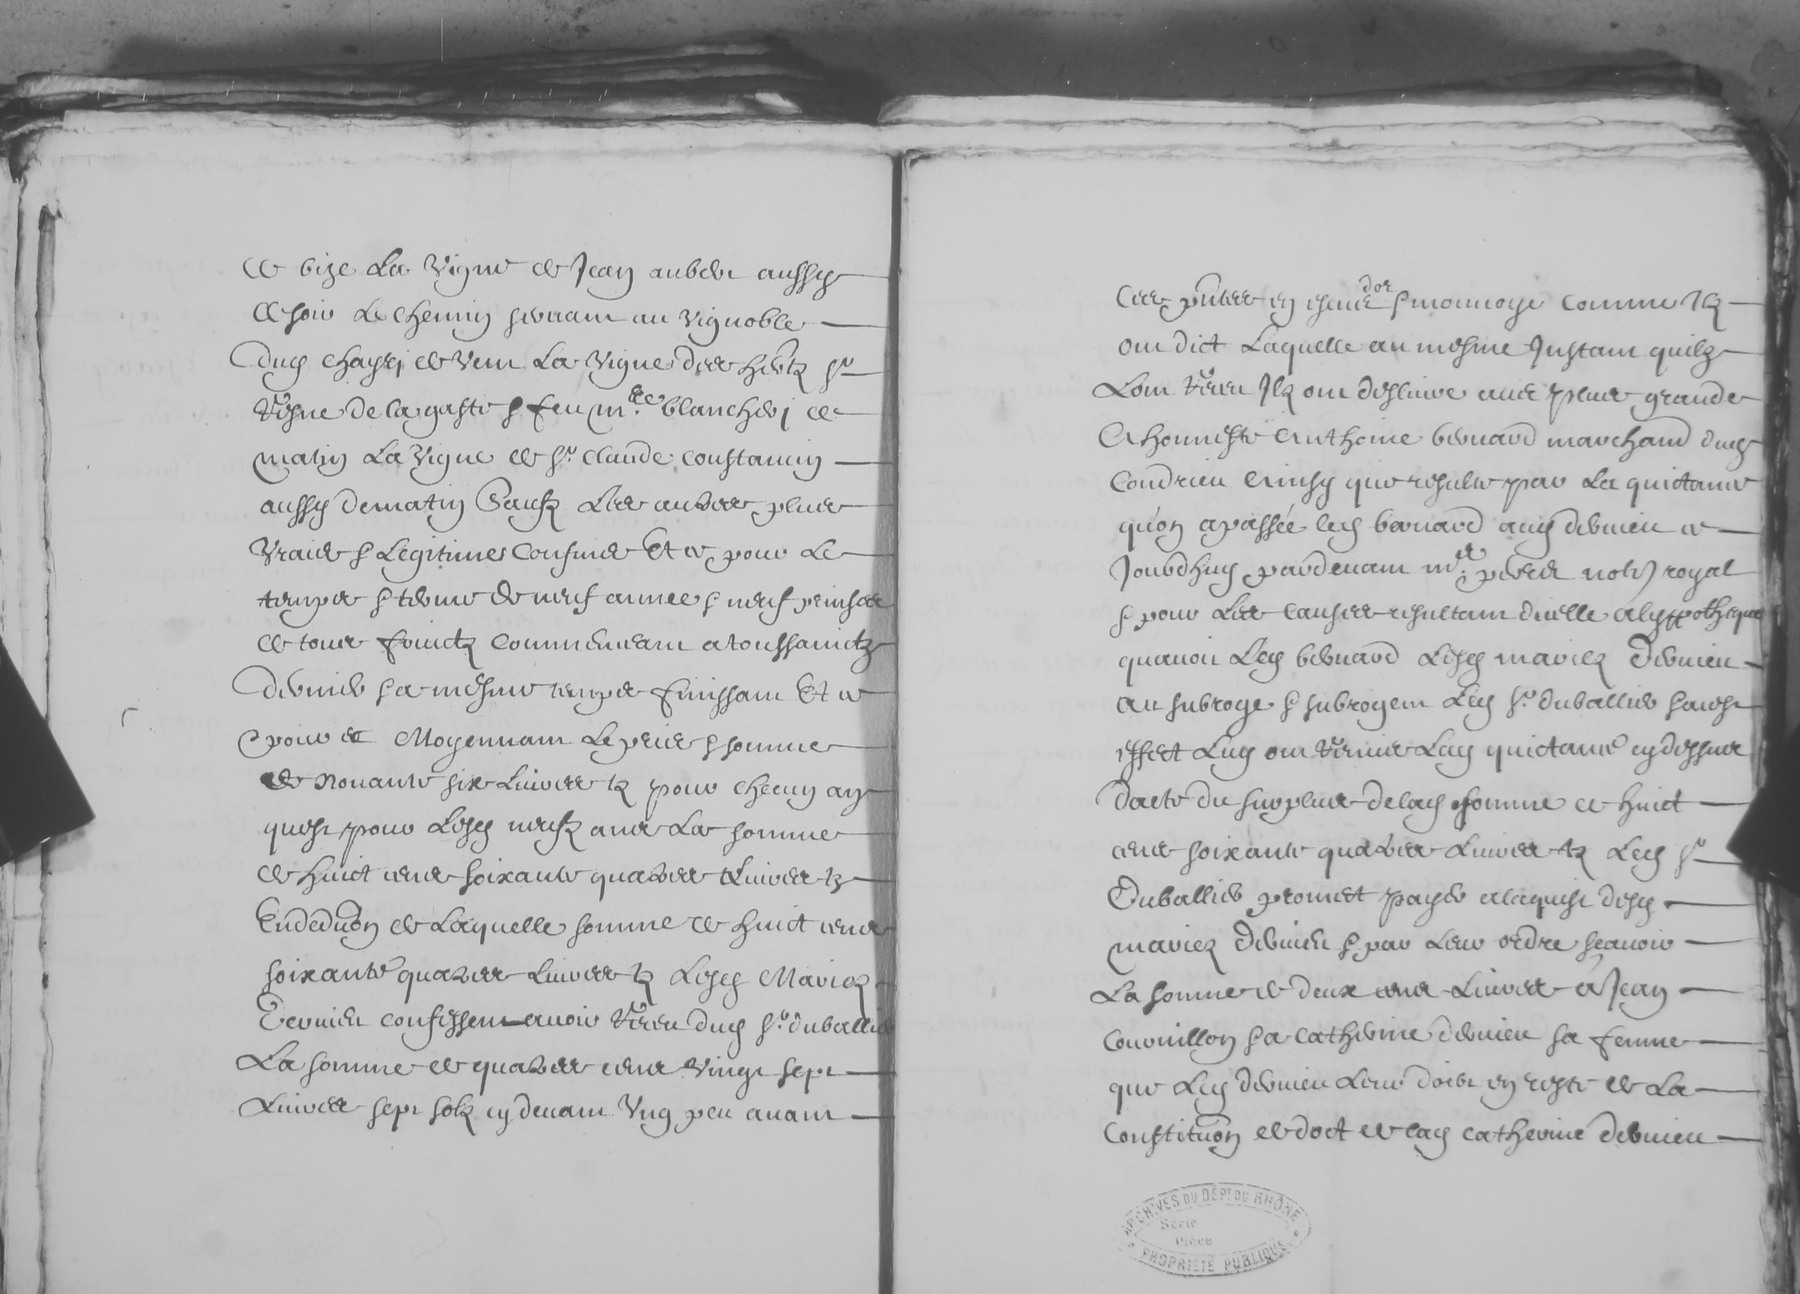 de bize La Vigne de Jean aubert aussy
de soir Le Chemin servant au Vignoble
dud chassy de Vent La Vigne des hertz sr
de la gaste & feu m.re blanchery de
matin La Vigne de sr. Claude Constantin
aussy dematin Saufz Les autres plus
Vraies & Legitimes Confins Et ce pour Le
temps & terme de neuf annees & neuf prinses
de tous fruictz Commencant a toussainctz
dernier & a mesme temps finissant Et ce
pour et Moyennant Le prix & somme
de Nonante six Livres tz pour Checun an
quest pour Lesd neufz ans La somme
de huict cens soixante quatre Livres tz
En deduon de Laquelle somme de huict cens
soixante quatre Livres tz Lesd Mariez
dervieu confessent avoir Receu dud sr. duballier
La somme de quatre cens Vingt sept
Livres sept solz cy devant Ung peu avant
ces pntes en dor & monnoye comme Ilz
ont dict Laquelle au mesme Instant quilz
Lont Receu Ilz ont deslivre avec plus grande
A honneste Anthoine bernard marchand dud
Condrieu Ainsy que resulte par La quictance
qu'on a passée led bernard aud dervieu ce
Jourdhuy pardevant m.e notre royal
& pour Les causes resultant dicelle a lhyppotheque
quavoit Led bernard Lesd mariez dervieu
au subroge & subrogent Led sr. duballier & a cest
effect Luy ont Remis Lad quictance cy dessus
dacte du surplus de lad somme de huict
cens soixante quatre Livres tz Led sr
Duballier promet payer a lacquit desd
mariez dervieu & par Leur ordre scavoir
La somme de deux cens Livres a Jean
Couvillon & a Catherine dervieu sa femme
que Led dervieu Leur doibt en reste de La
Constituon de doct de lad catherine dervieu
ARCHIVES DU DÉPT DU RHÔNE
Série
Pièce
PROPRIÉTÉ PUBLIQUE